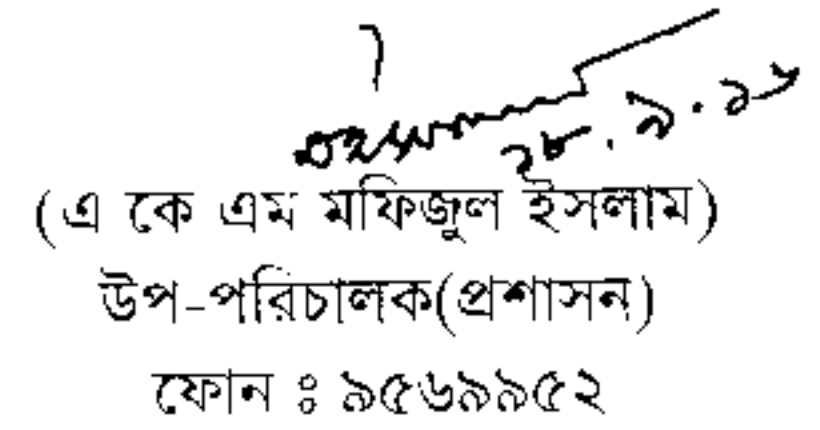 ১৮.৯.১৬
(এ কে এম মফিজুল ইসলাম)
উপ-পরিচালক(প্রশাসন)
ফোন ঃ ৯৫৬৯৯৫২